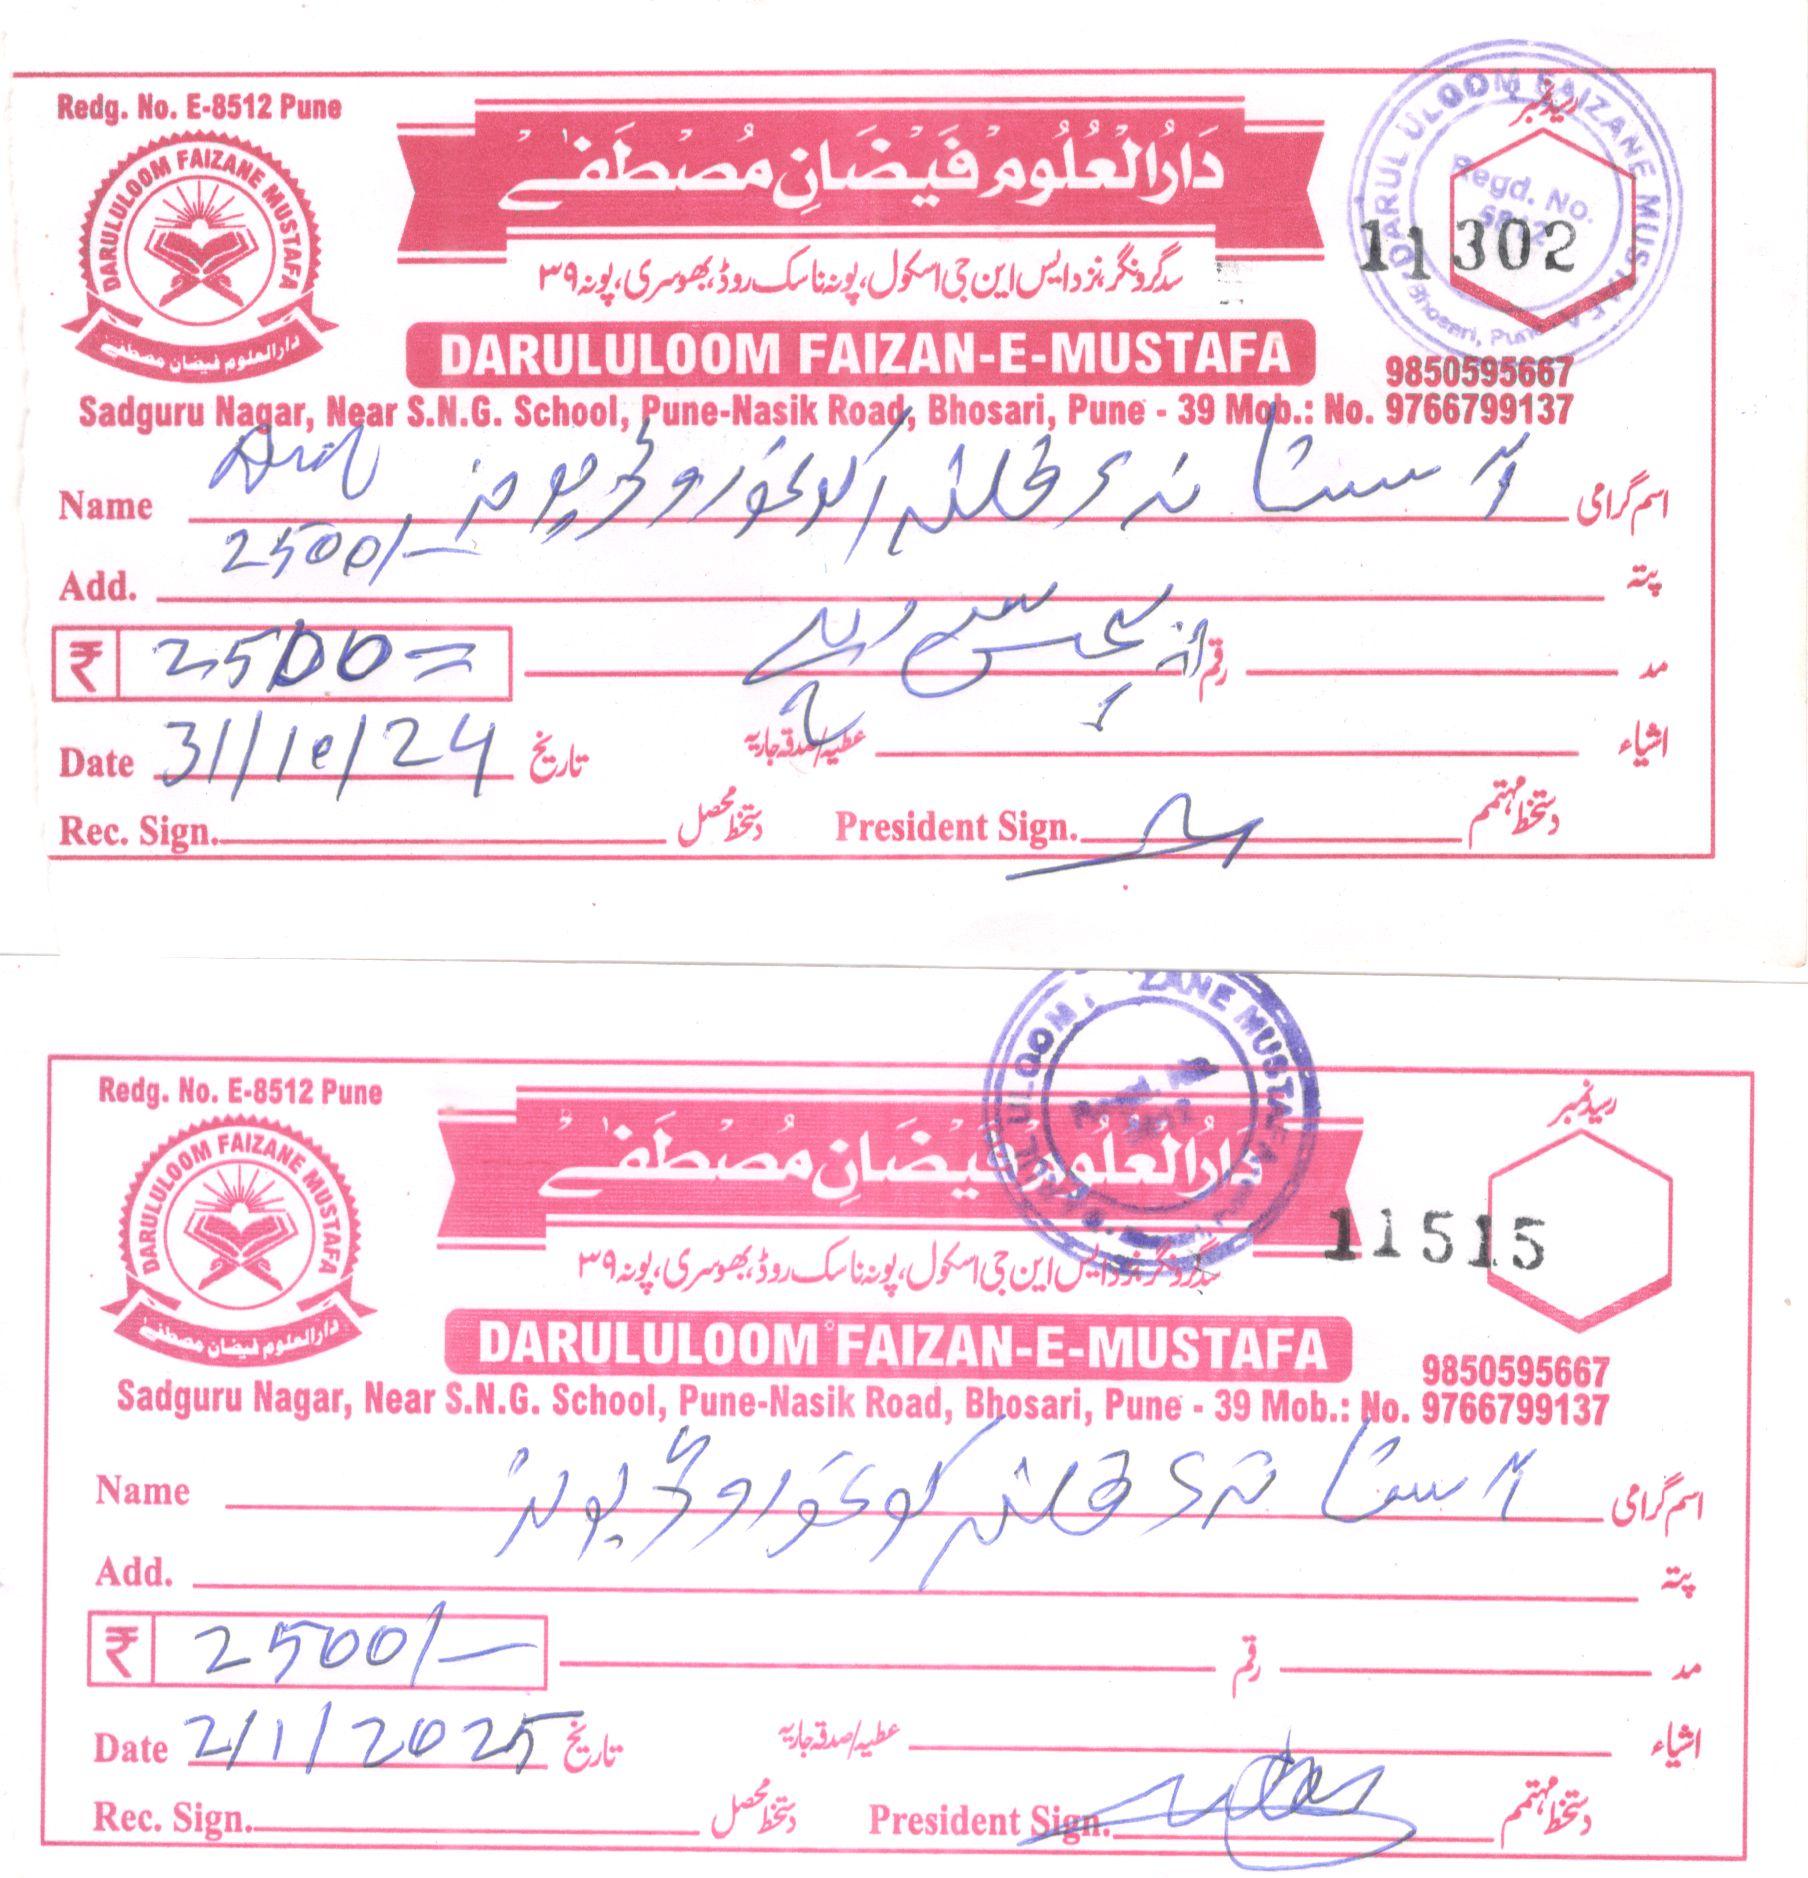 Redg. No. E-8512 Pune
DARULULOOM FAIZANE MUSTAFA
دارالعلوم فیضان مصطفےٰ
دَارُالعُلُوم فَیضَانِ مُصطَفےٰ
رسید نمبر
DARUL ULOOM FAIZANE MUSTAFA
Regd. No.
Bhosari, Pune
11302
سدگرونگر، نزد ایس این جی اسکول، پونہ ناسک روڈ، بھوسری، پونہ ۳۹
DARULULOOM FAIZAN-E-MUSTAFA
9850595667
Sadguru Nagar, Near S.N.G. School, Pune-Nasik Road, Bhosari, Pune - 39 Mob.: No. 9766799137
Name روڈ پونہ اسم گرامی
Add. 2500/- پتہ
₹ 2500= پچیس سو روپے رقم مد
Date 31/10/24 تاریخ عطیہ/صدقہ جاریہ اشیاء
Rec. Sign. دستخط محصل President Sign. دستخط مہتمم
Redg. No. E-8512 Pune
DARULULOOM FAIZANE MUSTAFA
دارالعلوم فیضان مصطفےٰ
دَارُالعُلُوم فَیضَانِ مُصطَفےٰ
رسید نمبر
ULOOM ZANE MUSTAFA
11515
سدگرونگر، نزد ایس این جی اسکول، پونہ ناسک روڈ، بھوسری، پونہ ۳۹
DARULULOOM FAIZAN-E-MUSTAFA
9850595667
Sadguru Nagar, Near S.N.G. School, Pune-Nasik Road, Bhosari, Pune - 39 Mob.: No. 9766799137
Name روڈ پونہ اسم گرامی
Add. پتہ
₹ 2500/- رقم مد
Date 2/1/2025 تاریخ عطیہ/صدقہ جاریہ اشیاء
Rec. Sign. دستخط محصل President Sign. دستخط مہتمم